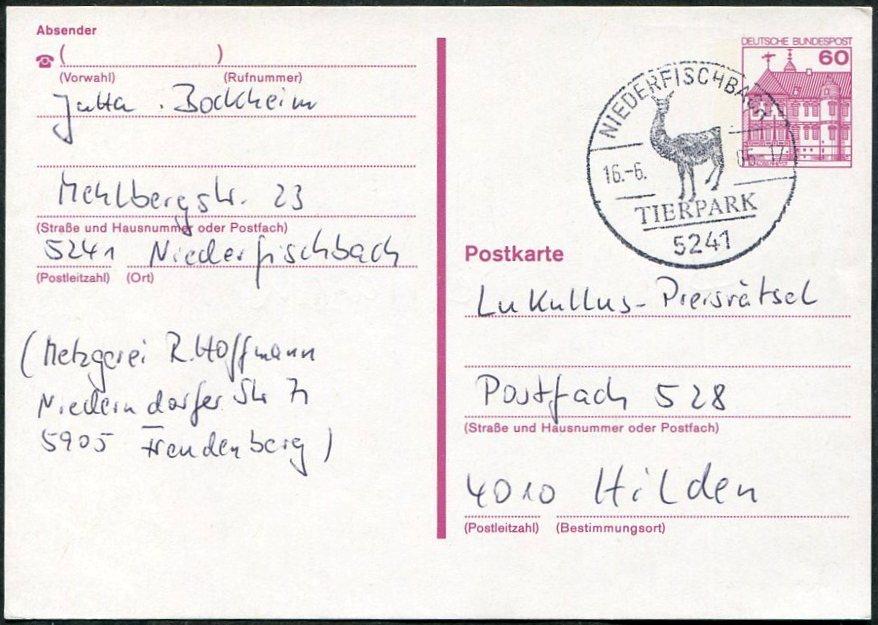 Absender
☎ ( )
(Vorwahl) (Rufnummer)
Jutta Bockheim
Mehlbergstr. 23
(Straße und Hausnummer oder Postfach)
5241 Niederfischbach
(Postleitzahl) (Ort)
(Metzgerei R. Hoffmann
Niederndorfer Str
5905 Freudenberg)
DEUTSCHE BUNDESPOST
60
NIEDERFISCHBACH
16.-6.
TIERPARK
5241
Postkarte
Lukullus-Preisrätsel
Postfach 528
(Straße und Hausnummer oder Postfach)
4010 Hilden
(Postleitzahl) (Bestimmungsort)